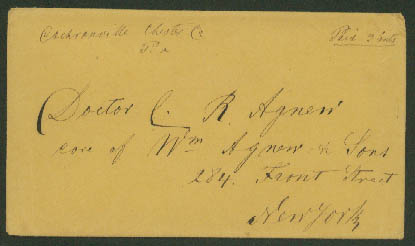 Cochranville Chester Co
Pa
Paid 3 cents
Doctor C. R. Agnew
care of Wm Agnew & Sons
284. Front Street
New York